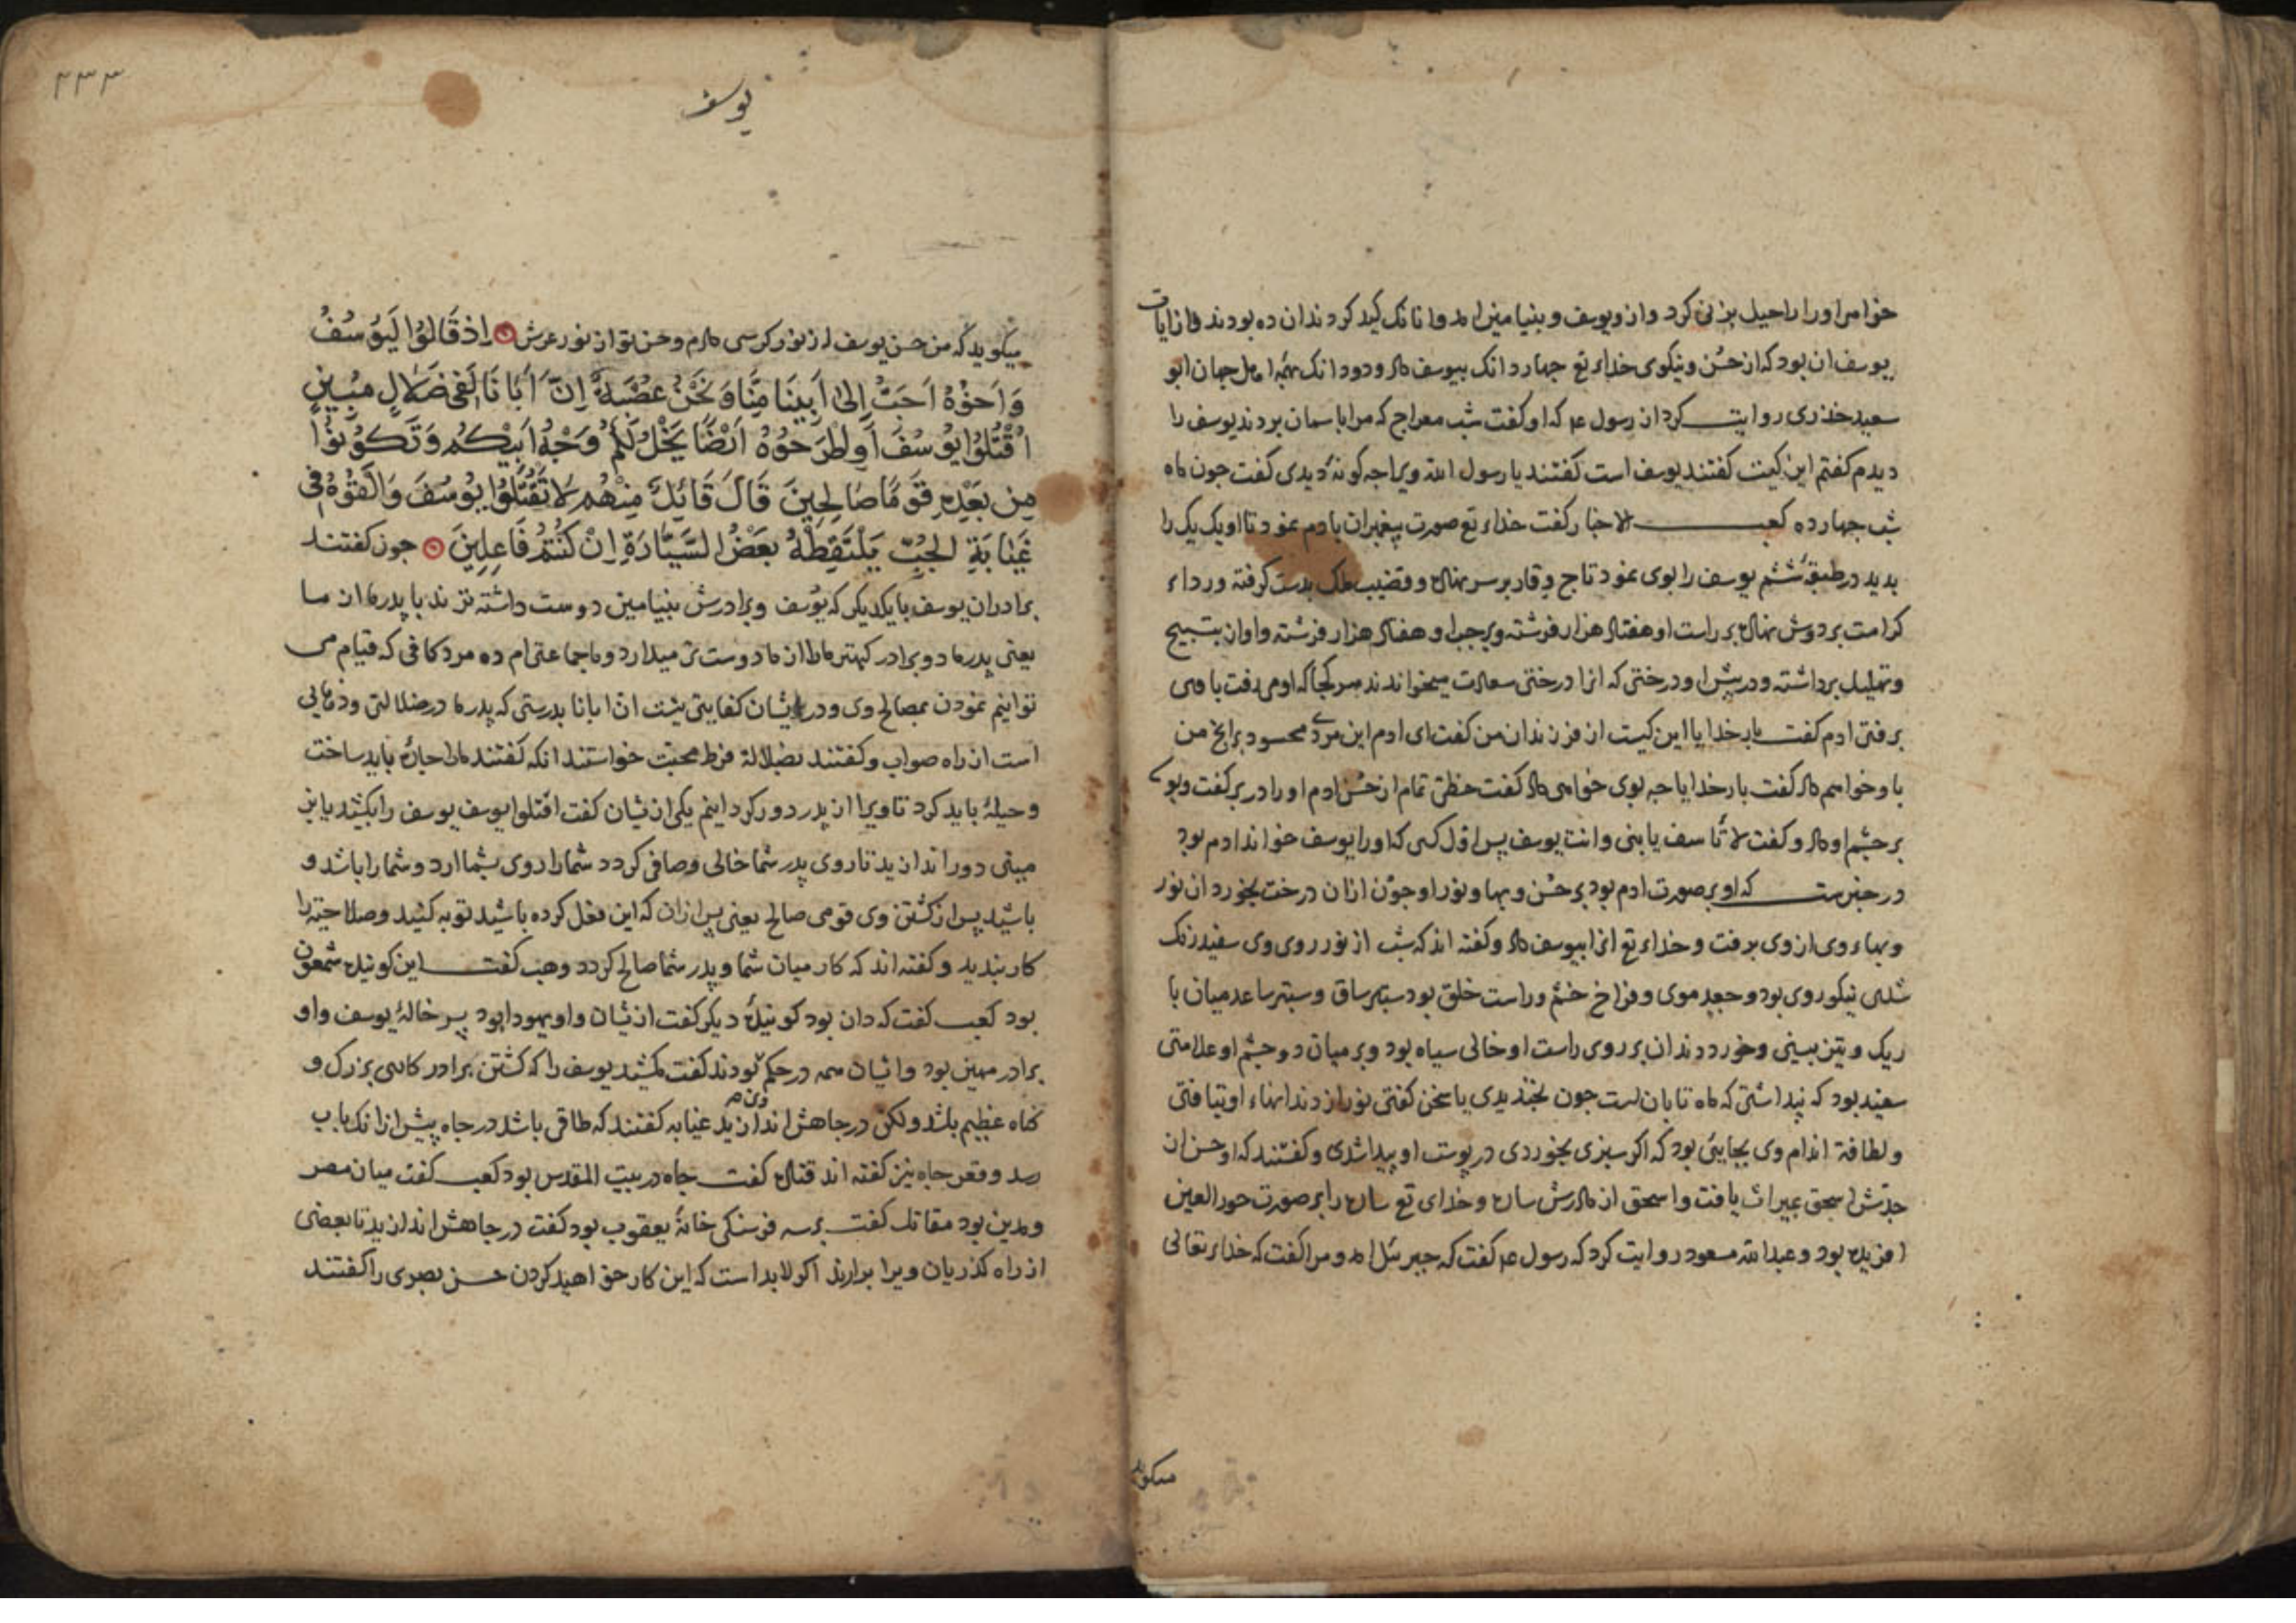 خواهر او را راحیل بزنی کرد و از ویوسف و بنیامین امد و انانک کید کردند ان ده بودند و از ایات
یوسف ان بود که از حُسن و نیکوی خداء تع جهار دانک بیوسف داد و دو دانک بهمۀ اهل جهان ابو
سعید خذری روایت کرد از رسول ع م که او گفت شب معراج که مرا باسمان بردند یوسف را
دیدم کفتم این کیست کفتند یوسف است کفتند یا رسول الله ویرا جه کونه دیدی کفت جون ماه
شب جهارده کعب الاخبار کفت خداء تع صورت پیغمبران بادم نمود تا او یک یک را
بدید در طبقۀ ششم یوسف را بوی نمود تاج وقار بر سر نهاده و قضیب ملک بدست کرفته و رداء
کرامت بر دوش نهاده بر راست او هفتاد هزار فرشته و بر جب او هفتاد هزار فرشته و اوان بتسبیح
و تهلیل برداشته و در پیش او درختی که انرا درختی سعادت میخواندند هر کجا که او می رفت با وی
برفتی ادم کفت بار خدایا این کیست از فرزندان من کفت ای ادم این مردی محسود برانج من
باو خواهم داد کفت بار خدایا جه بوی خواهی داد کفت حظی تمام از حُسن ادم او را در بر کفت و بو
بر جشم او داد و کفت لا تأسف یا بنی وانت یوسف پس اوّل کسی که او را یوسف خواند ادم بود
در خبرست که او بر صورت ادم بود بر حُسن و بها و نور او جون ازان درخت بخورد ان نور
و بهاء وی از وی برفت و خداء تع انرا بیوسف داد و کفته اند که شب از نور روی وی سفید رنک
شدی نیکو روی بود و جعد موی و فراخ جشم و راست خلق بود ستبر ساق و ستبر ساعد میان با
ریک و تیز بینی و خورد دندان بر روی راست او خالی سیاه بود و بر میان دو جشم او علامتی
سفید بود که پنداشتی که ماه تابان است جون بخندیدی یا سخن کفتی نور از دندانهاء او بتافتی
و لطافة اندام وی بجایی بود که اکر سبزی بخوردی در پوست او پیدا شدی و کفتند که او حسن از
جدّش اسحق بمیراث یافت و اسحق از مادرش ساره و خدای تع ساره را بر صورت حور العین
افریده بود و عبدالله مسعود روایت کرد که رسول ع م کفت که جبرئیل امد و مرا کفت که خداء تعالی
میکوید
۴۳۳
یوسف
میکوید که من حسن یوسف از نور کرسی دادم و حسن تو از نور عرش اِذْ قَالُوا لَيُوسُفُ
وَاَخُوْهُ اَحَبُّ اِلىٰ اَبِينَا مِنَّا وَنَحْنُ عُصْبَةٌ اِنَّ اَبَانَا لَفِي ضَلَالٍ مُبِينٍ
اقْتُلُوا يُوسُفَ اَوِ اطْرَحُوهُ اَرْضًا يَخْلُ لَكُمْ وَجْهُ اَبِيْكُمْ وَتَكُوْنُوْا
مِنْ بَعْدِهِ قَوْمًا صَالِحِينَ قَالَ قَائِلٌ مِنْهُمْ لَا تَقْتُلُوا يُوسُفَ وَاَلْقُوْهُ فِي
غَيَابَةِ الْجُبِّ يَلْتَقِطْهُ بَعْضُ السَّيَّارَةِ اِنْ كُنْتُمْ فَاعِلِينَ جون کفتند
برادران یوسف با یکدیکر که یوسف و برادرش بنیامین دوست داشته ترند با پدر ما از ما
یعنی پدر ما دو برادر کهتر ما را از ما دوست تر میدارد و ما جماعتی ام ده مرد کافی که قیام می
توانیم نمودن بمصالح وی و در ایشان کفایتی نیست ان ابانا بدرستی که پدر ما در ضلالتی و دهایی
است از راه صواب و کفتند بضلالة فرط محبّت خواستند انکه کفتند ما را جارۀ باید ساخت
و حیلۀ باید کرد تا ویرا از پدر دور کردانیم یکی ازیشان کفت اقتلوا یوسف یوسف را بکشید یا بز
مینی دور اندازید تا روی پدر شما خالی و صافی کردد شما را روی بشما ارد و شما را باشد و
باشید پس از کشتن وی قومی صالح یعنی پس ازان که این فعل کرده باشید توبه کنید و صلاحیّة را
کار بندید و کفته اند که کار میان شما و پدر شما صالح کردد وهب کفت این کوینده شمعون
بود کعب کفت که دان بود کویندۀ دیکر کفت ازیشان و او یهودا بود پسر خالۀ یوسف و او
برادر مهین بود و ایشان همه در حکم او بودند کفت مکشید یوسف را که کشتن برادر کاری بزرک و
کناه عظیم باشد ولکن در جاهش اندازید غیابه کفتند که طاقی باشد در جاه پیش ازانک باب
رسد و قعر جاه نیز کفته اند قتاده کفت جاه در بیت المقدس بود کعب کفت میان مصر
و مدین بود مقاتل کفت بر سه فرسنکی خانۀ یعقوب بود کفت در جاهش اندازید تا بعضی
از راه کذریان ویرا بردارند اکر لابد است که این کار خواهید کردن حسن بصری را کفتند